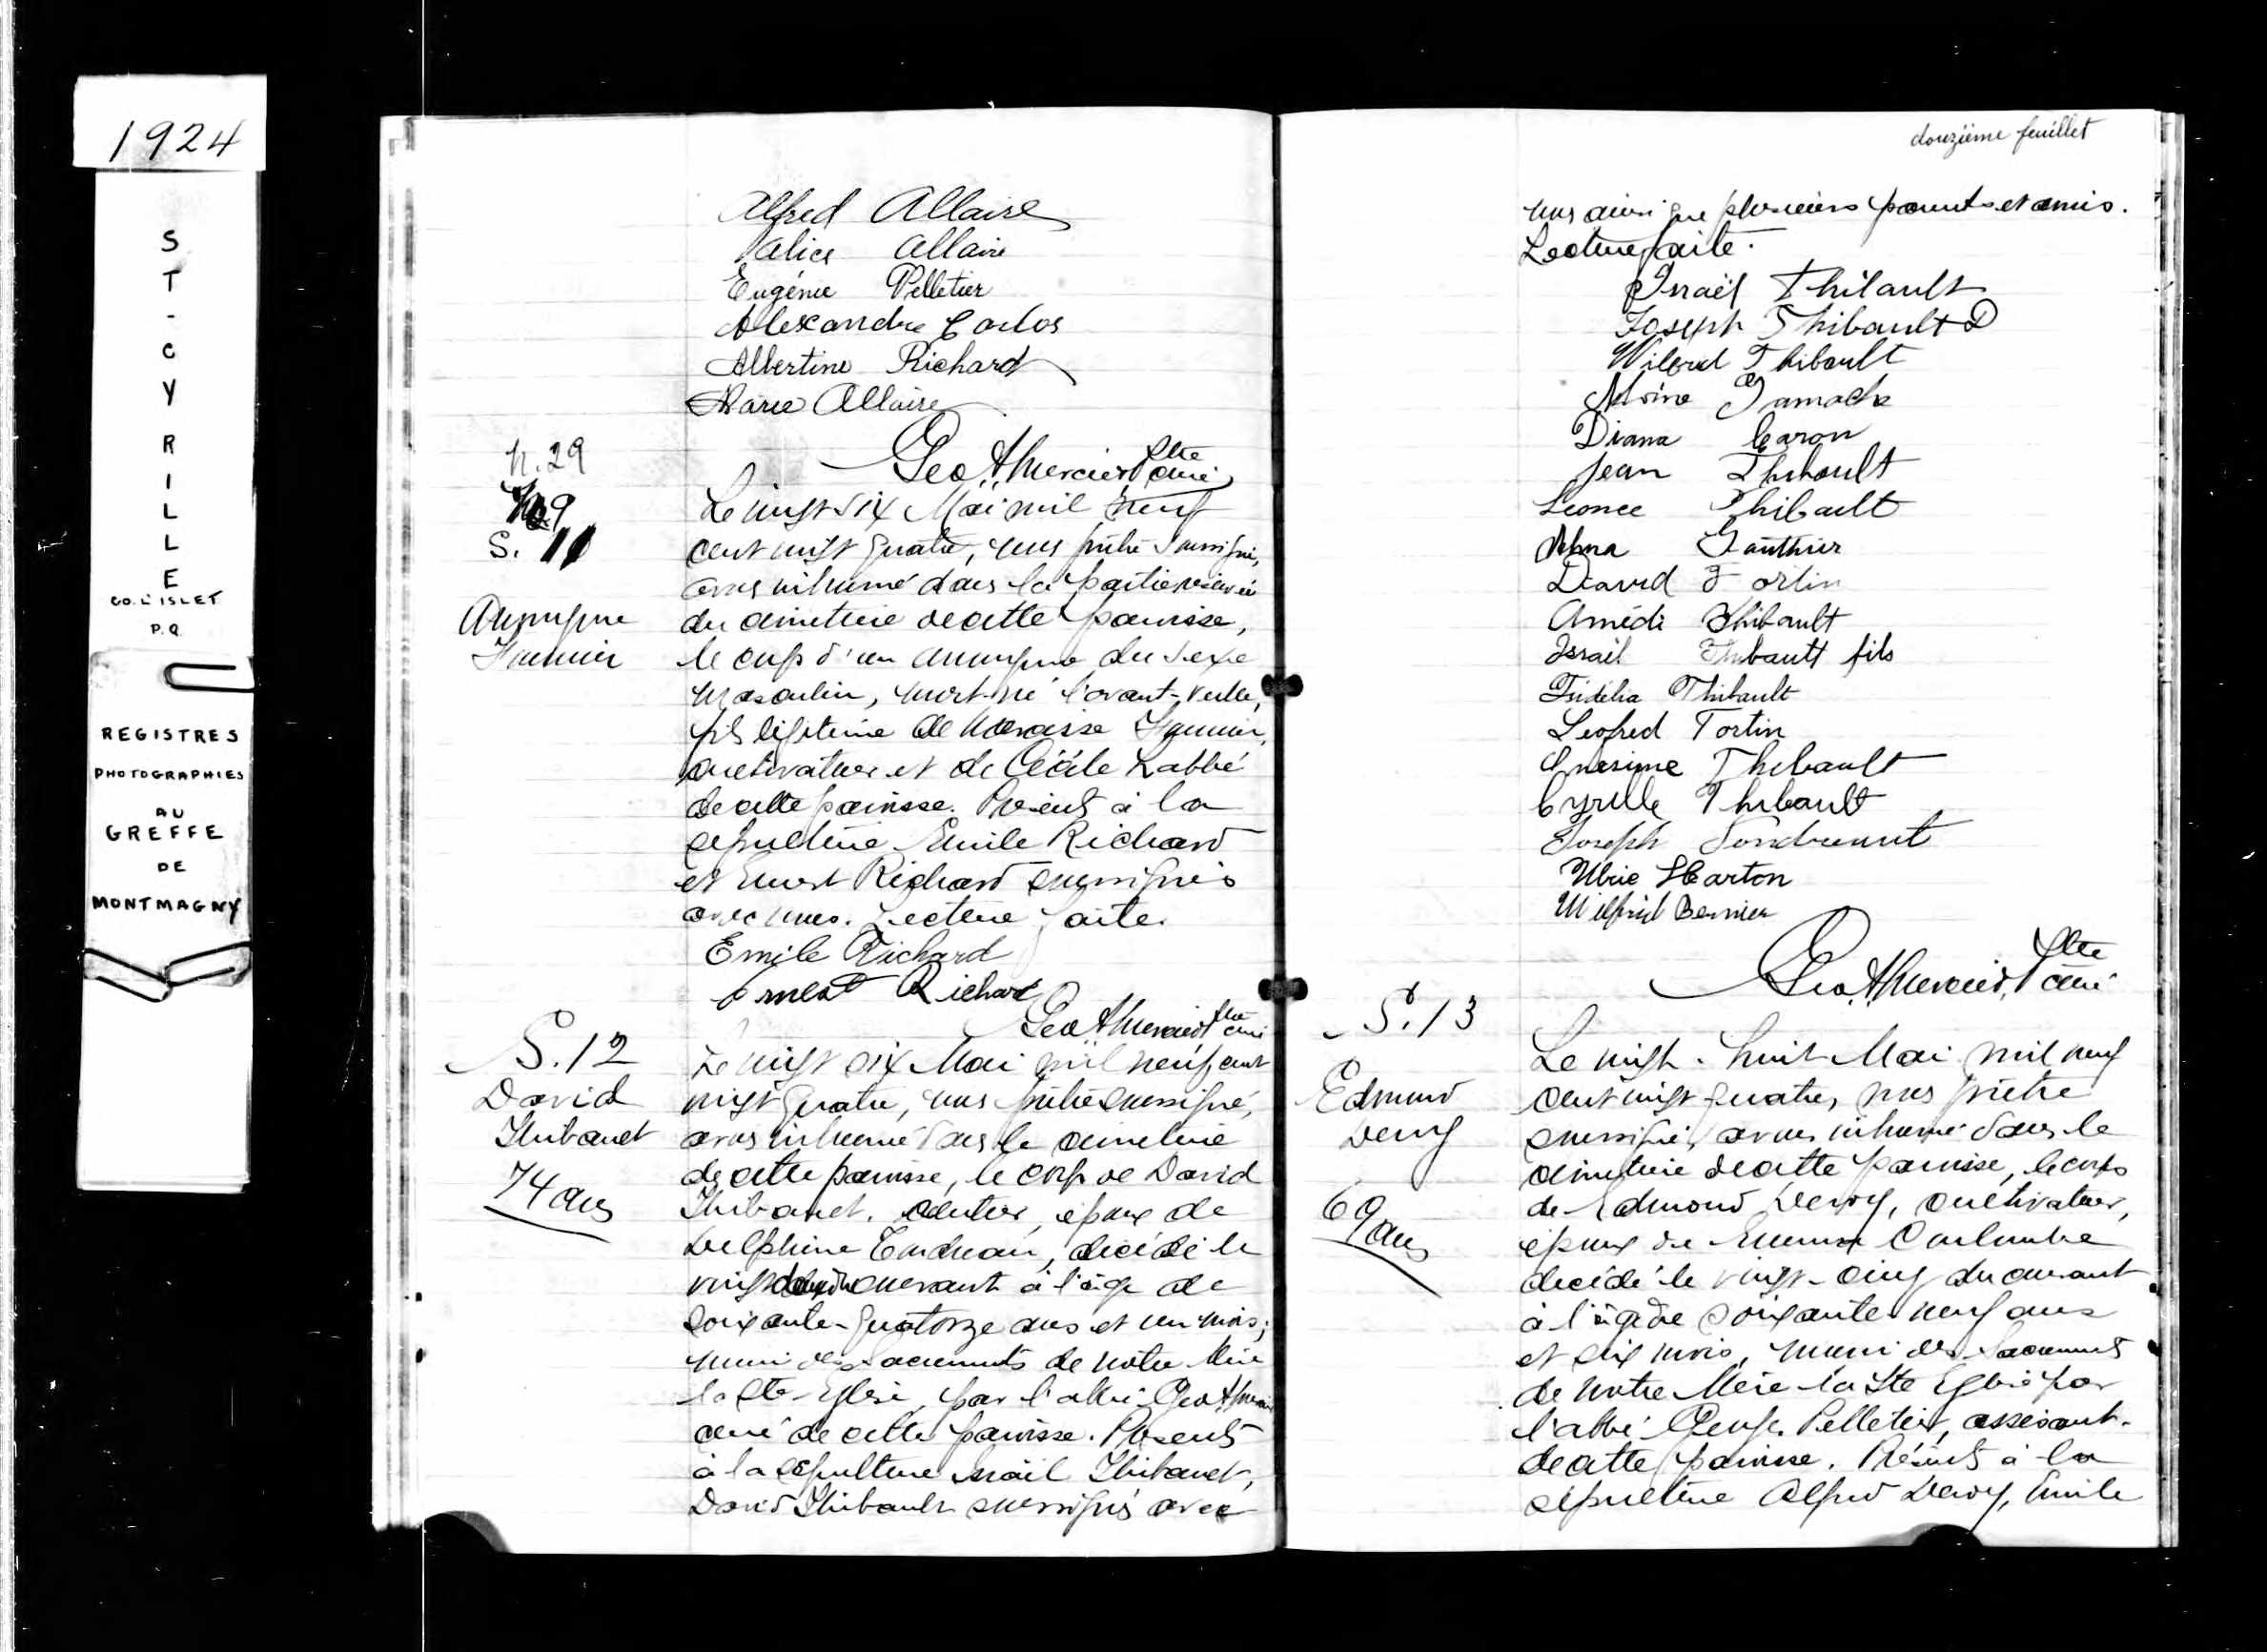 1924
ST-CYRILLE
CO. L'ISLET
P.Q.
REGISTRES
PHOTOGRAPHIES
AU
GREFFE
DE
MONTMAGNY
Alfred Allaire
Alice Allaire
Eugénie Pelletier
Alexandre Carlos
Albertine Richard
Marie Allaire
Geo. A. Mercier Ptre curé
N. 29
S. 11
Anonyme
Fournier
Le vingt six Mai mil neuf
cent vingt quatre, nous prêtre soussigné,
avons inhumé dans la partie réservée
du cimetière de cette paroisse,
le corps d'un anonyme du sexe
masculin, mort-né l'avant-veille,
fils légitime de Narcisse Fournier,
cultivateur et de Cécile Labbé
de cette paroisse. Présents à la
sépulture Emile Richard
et Ernest Richard soussignés
avec nous. Lecture faite.
Emile Richard
Ernest Richard
Geo. A. Mercier Ptre curé
S. 12
David
Thibault
74 ans
Le vingt six Mai mil neuf cent
vingt quatre, nous prêtre soussigné,
avons inhumé dans le cimetière
de cette paroisse, le corps de David
Thibault, rentier, époux de
Delphine décédé le
vingt deux du courant à l'âge de
soixante-quatorze ans et un mois;
muni des sacrements de notre Mère
la Ste Eglise, par l'abbé Geo. A. Mercier
curé de cette paroisse. Présents
à la sépulture Israël Thibault,
David Thibault soussignés avec
douzième feuillet
nous ainsi que plusieurs parents et amis.
Lecture faite.
Israël Thibault
Joseph Thibault D
Wilfrid Thibault
Gamache
Diana Caron
Jean Thibault
Léonce Thibault
Alma Gauthier
David Fortin
Amédé Thibault
Israël Thibault fils
Fridélia Thibault
Léofred Fortin
Onésime Thibault
Cyrille Thibault
Joseph
Ulric Harton
Wilfrid Bernier
Geo. A. Mercier, Ptre curé
S. 13
Edmond
Leroy
69 ans
Le vingt-huit Mai mil neuf
cent vingt quatre, nous prêtre
soussigné, avons inhumé dans le
cimetière de cette paroisse, le corps
de Edmond Leroy, cultivateur,
époux de Coulombe
décédé le vingt-cinq du courant
à l'âge de soixante-neuf ans
et dix mois, muni des Sacrements
de Notre Mère la Ste Eglise par
l'abbé Pelletier, desservant
de cette paroisse. Présents à la
sépulture Alfred Leroy, Emile